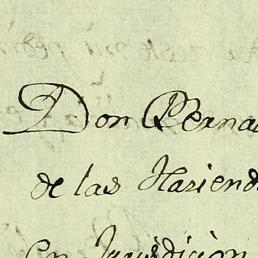 Don Berna
de las Haziend
en Jurisdicion